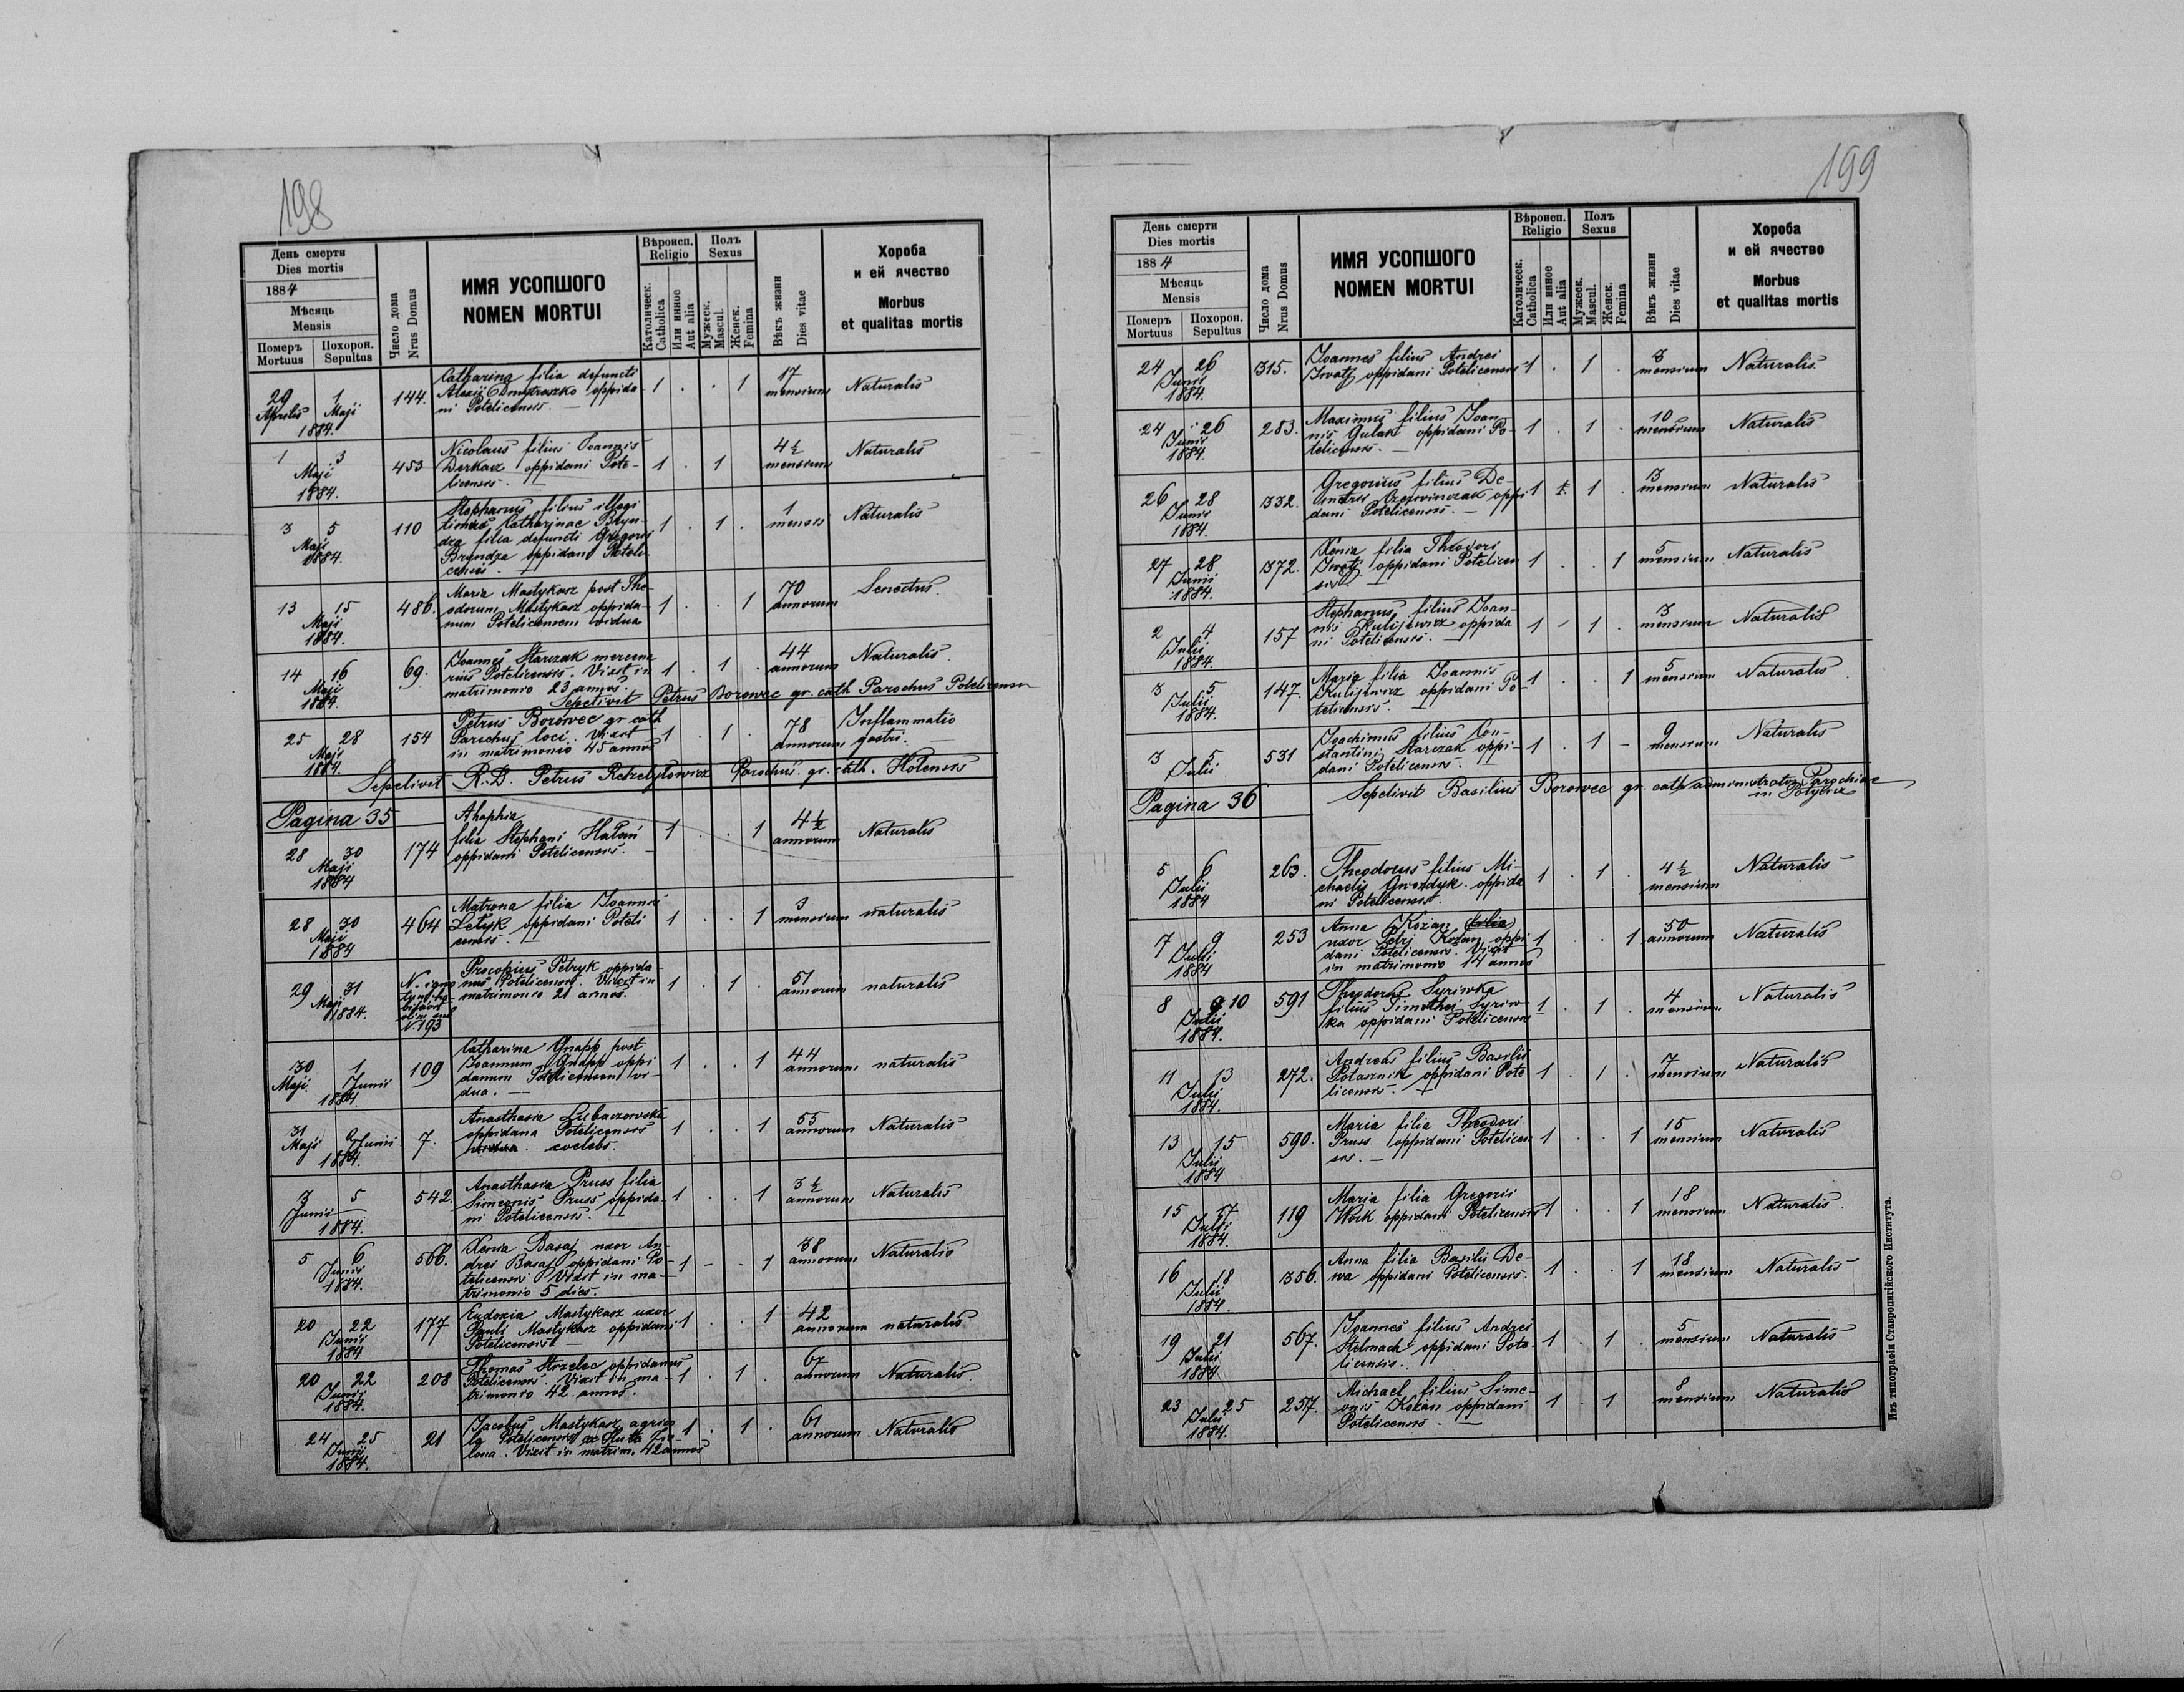 198
День смерти
Dies mortis
1884
Мѣсяць
Mensis
Померъ
Mortuus
Похорон.
Sepultus
Число дома
Nrus Domus
ИМЯ УСОПШОГО
NOMEN MORTUI
Вѣроисп.
Religio
Католическ.
Catholica
Или инное
Aut alia
Полъ
Sexus
Мужеск.
Mascul.
Женск.
Femina
Вѣкъ жизни
Dies vitae
Хороба
и ей ячество
Morbus
et qualitas mortis
29 Aprilis 1 Maji 1884. 144. Catharina filia defuncti
Alexii Dmytraszko oppida-
ni Potelicensis. — 1 . . 1 17 mensium Naturalis
1 3 Maji 1884. 453 Nicolaus filius Joannis
Derkacz oppidani Pote-
licensis. — 1 . 1 4½ mensium Naturalis
3 5 Maji 1884. 110 Stephanus filius illegi
timus Catharinae Bryn-
dza filia defuncti Gregorii
Bryndza oppidani Poteli
censis. 1 . 1 . 1 mensis Naturalis
13 15 Maji 1884. 486. Maria Mastykasz post The-
odorum Mastykasz oppida-
num Potelicensem vidua 1 . . 1 70 annorum Senectus.
14 16 Maji 1884. 69. Joannes Starczak mercena
rius Potelicensis. Vixit in
matrimonio 23 annos. 1 . 1 . 44 annorum Naturalis.
Sepelivit Petrus Borowec gr. cath Parochus Potelicensis
25 28 Maji 1884. 154 Petrus Borowec gr cath
Parochus loci. Vixit
in matrimonio 45 annos 1 . 1 . 78 annorum Inflammatio
gastri.
Sepelivit R. D. Petrus Parochus gr. cath. Holensis
Pagina 35
28 30 Maji 1884 174 Ahaphia
filia Stephani Hałuń
oppidani Potelicensis. — 1 . . 1 4½ annorum Naturalis
28 30 Maji 1884 464 Matrona filia Joannis
Letyk oppidani Poteli
censis. — 1 . . 1 3 mensium naturalis
29 31 Maji 1884. N. igno
tum
olim sub
N. 193 Procopius Petryk oppida-
nus Potelicensis. Vixit in
matrimonio 21 annos. 1 . 1 . 51 annorum naturalis
30 Maji 1 Junii 1884. 109 Catharina Gnapp post
Joannum Gnapp oppi
danum Potelicensem vi-
dua. — 1 . . 1 44 annorum naturalis
31 Maji 2 Junii 1884. 7. Anasthasia Lubaczowska
oppidana Potelicensis
vidua. coelebs. 1 . . 1 55 annorum Naturalis
3 5 Junii 1884. 542. Anasthasia Pruss filia
Simeonis Pruss oppida-
ni Potelicensis. 1 . . 1 3½ annorum Naturalis
5 6 Junii 1884. 566. Xenia Basaj uxor An-
drei Basaj oppidani Po-
telicensis Vixit in ma-
trimonio 5 dies. 1 - . 1 38 annorum Naturalis
20 22 Junii 1884 177 Eudoxia Mastykasz uxor
Pauli Mastykasz oppidani
Potelicensis 1 . . 1 42 annorum naturalis
20 22 Junii 1884. 208 Thomas Strzelec oppidanus
Potelicensis. Vixit in ma-
trimonio 42 annos. 1 . 1 . 67 annorum Naturalis.
24 25 Junii 1884. 21 Jacobus Mastykasz agrico
la Potelicensis ex Hutta Zie-
lona. Vixit in matrim. 42 annos 1 . 1 . 61 annorum Naturalis
199
День смерти
Dies mortis
1884
Мѣсяць
Mensis
Померъ
Mortuus
Похорон.
Sepultus
Число дома
Nrus Domus
ИМЯ УСОПШОГО
NOMEN MORTUI
Вѣроисп.
Religio
Католическ.
Catholica
Или инное
Aut alia
Полъ
Sexus
Мужеск.
Mascul.
Женск.
Femina
Вѣкъ жизни
Dies vitae
Хороба
и ей ячество
Morbus
et qualitas mortis
24 26 Junii 1884. 315. Joannes filius Andrei
Iwaty oppidani Potelicensis 1 . 1 . 3 mensium Naturalis.
24 26 Junii 1884. 283. Maximus filius Joan-
nis Gulak oppidani Po-
telicensis. — 1 . 1 . 10 mensium Naturalis
26 28 Junii 1884. 332. Gregorius filius De-
metrii Czerwinczak oppi
dani Potelicensis. — 1 1 . 3 mensium Naturalis
27 28 Junii 1884. 372. Xenia filia Theodori
Iwaty oppidani Potelicen
sis. — 1 . . 1 5 mensium Naturalis
2 4 Julii 1884 157 Stephanus filius Joan-
nis Kulijewicz oppida
ni Potelicensis. — 1 - 1 . 3 mensium Naturalis
3 5 Julii 1884. 147. Maria filia Joannis
Kulijewicz oppidani Po-
telicensis. — 1 . . 1 5 mensium Naturalis
3 5 Julii 531 Joachimus filius Con-
stantini Starczak oppi-
dani Potelicensis. 1 . 1 - 9 mensium Naturalis
Pagina 36 Sepelivit Basilius Borowec gr. cath administrator Parochiae
in Potylicz
5 6 Julii 1884 263. Theodorus filius Mi-
chaelis Gwozdyk oppida
ni Potelicensis. 1 . 1 . 4½ mensium Naturalis
7 9 Julii 1884 253 Anna Kozan filia
uxor Petri Kozan oppi
dani Potelicensis. Vixit
in matrimonio 14 annos 1 . . 1 50 annorum Naturalis
8 9 10 Julii 1884. 591 Theodorus Syriwka
filius Timothei Syriw-
ka oppidani Potelicensis 1 . 1 . 4 mensium Naturalis
11 13 Julii 1884. 272. Andreas filius Basilii
Potasznik oppidani Pote
licensis. — 1 . 1 . 7 mensium Naturalis
13 15 Julii 1884 590. Maria filia Theodori
Pruss oppidani Potelicen
sis. — 1 . . 1 15 mensium Naturalis
15 17 Julii 1884. 119 Maria filia Gregorii
Wołk oppidani Potelicensis 1 . . 1 18 mensium Naturalis.
16 18 Julii 1884. 356. Anna filia Basilii De-
wa oppidani Potelicensis. 1 . . 1 18 mensium Naturalis
19 21 Julii 1884 567. Joannes filius Andrei
Stelmach oppidani Pote-
licensis. 1 . 1 . 5 mensium Naturalis
23 25 Julii 1884. 257. Michael filius Sime-
onis Kokan oppidani
Potelicensis. — 1 . 1 8 mensium Naturalis
Изъ типографіи Ставропигійского Института.